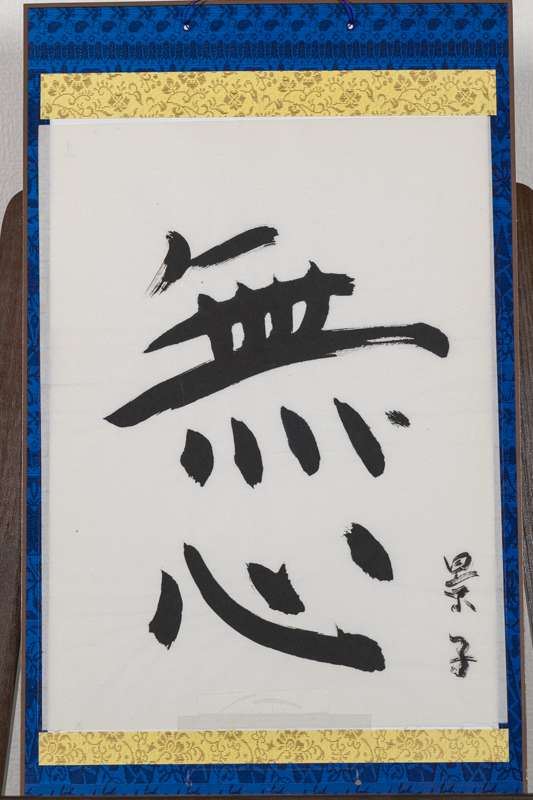 無心
景子